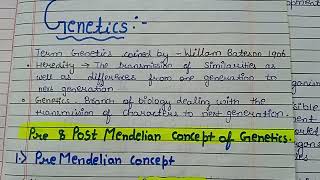 Genetics:-
Term Genetics coined by - William Bateson 1906
Heredity - The transmission of Similarities as
well as differences from one generation to
next generation
Genetics - Branch of biology dealing with the
transmission of characters to next generation.
Pre & Post Mendelian Concept of Genetics.
1:) Pre Mendelian concept